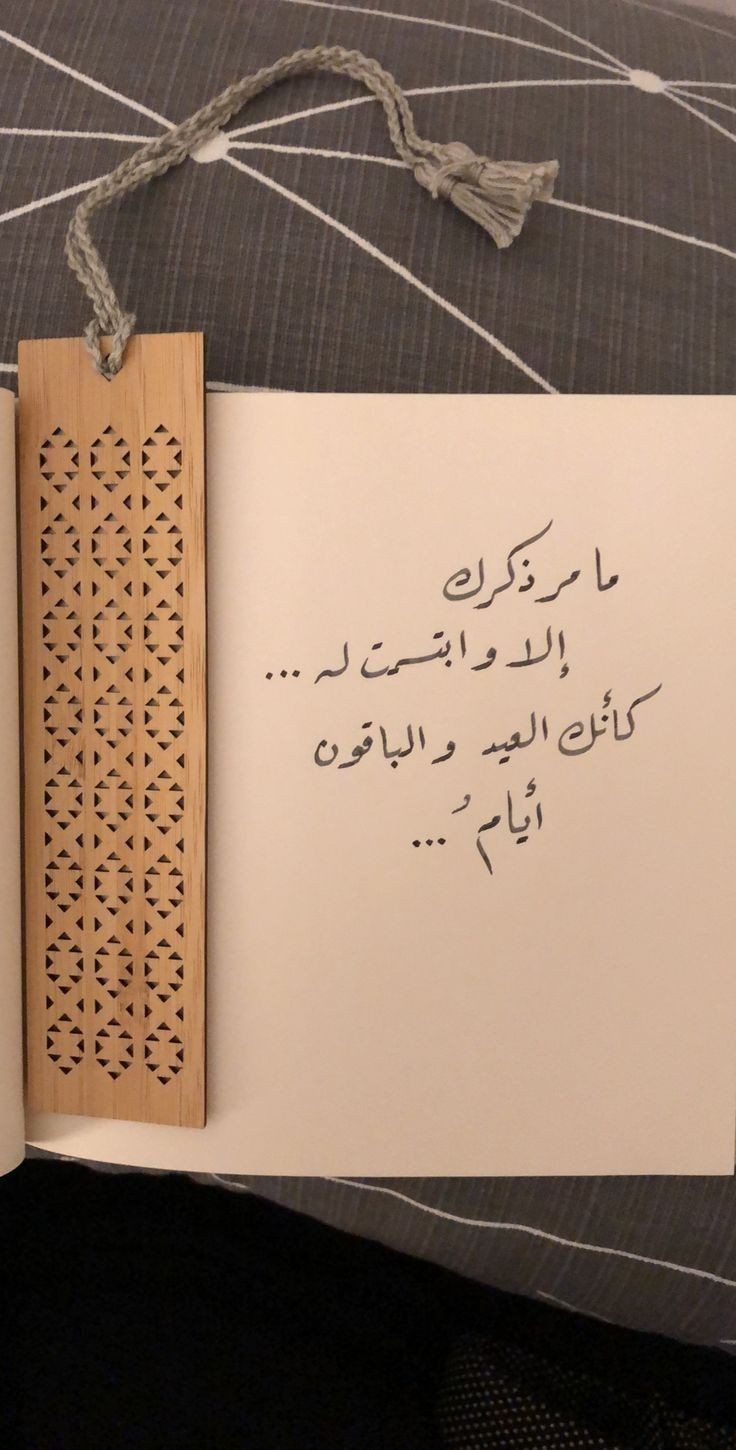 ما مر ذكرك
إلا وابتسمت له ...
كأنك العيد والباقون
أيامُ ...